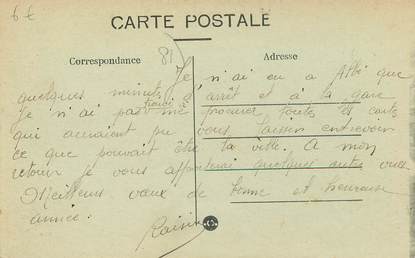 6 €
CARTE POSTALE
Correspondance 81 Adresse
Je n'ai eu a Albi que
quelques minutes d'arrêt et à la gare
je n'ai pas pu me procurer toutes les cartes
qui auraient pu vous laisser entrevoir
ce que pouvait être la ville. A mon
retour je vous apporterai quelques autres vues
Meilleurs vœux de bonne et heureuse
année.